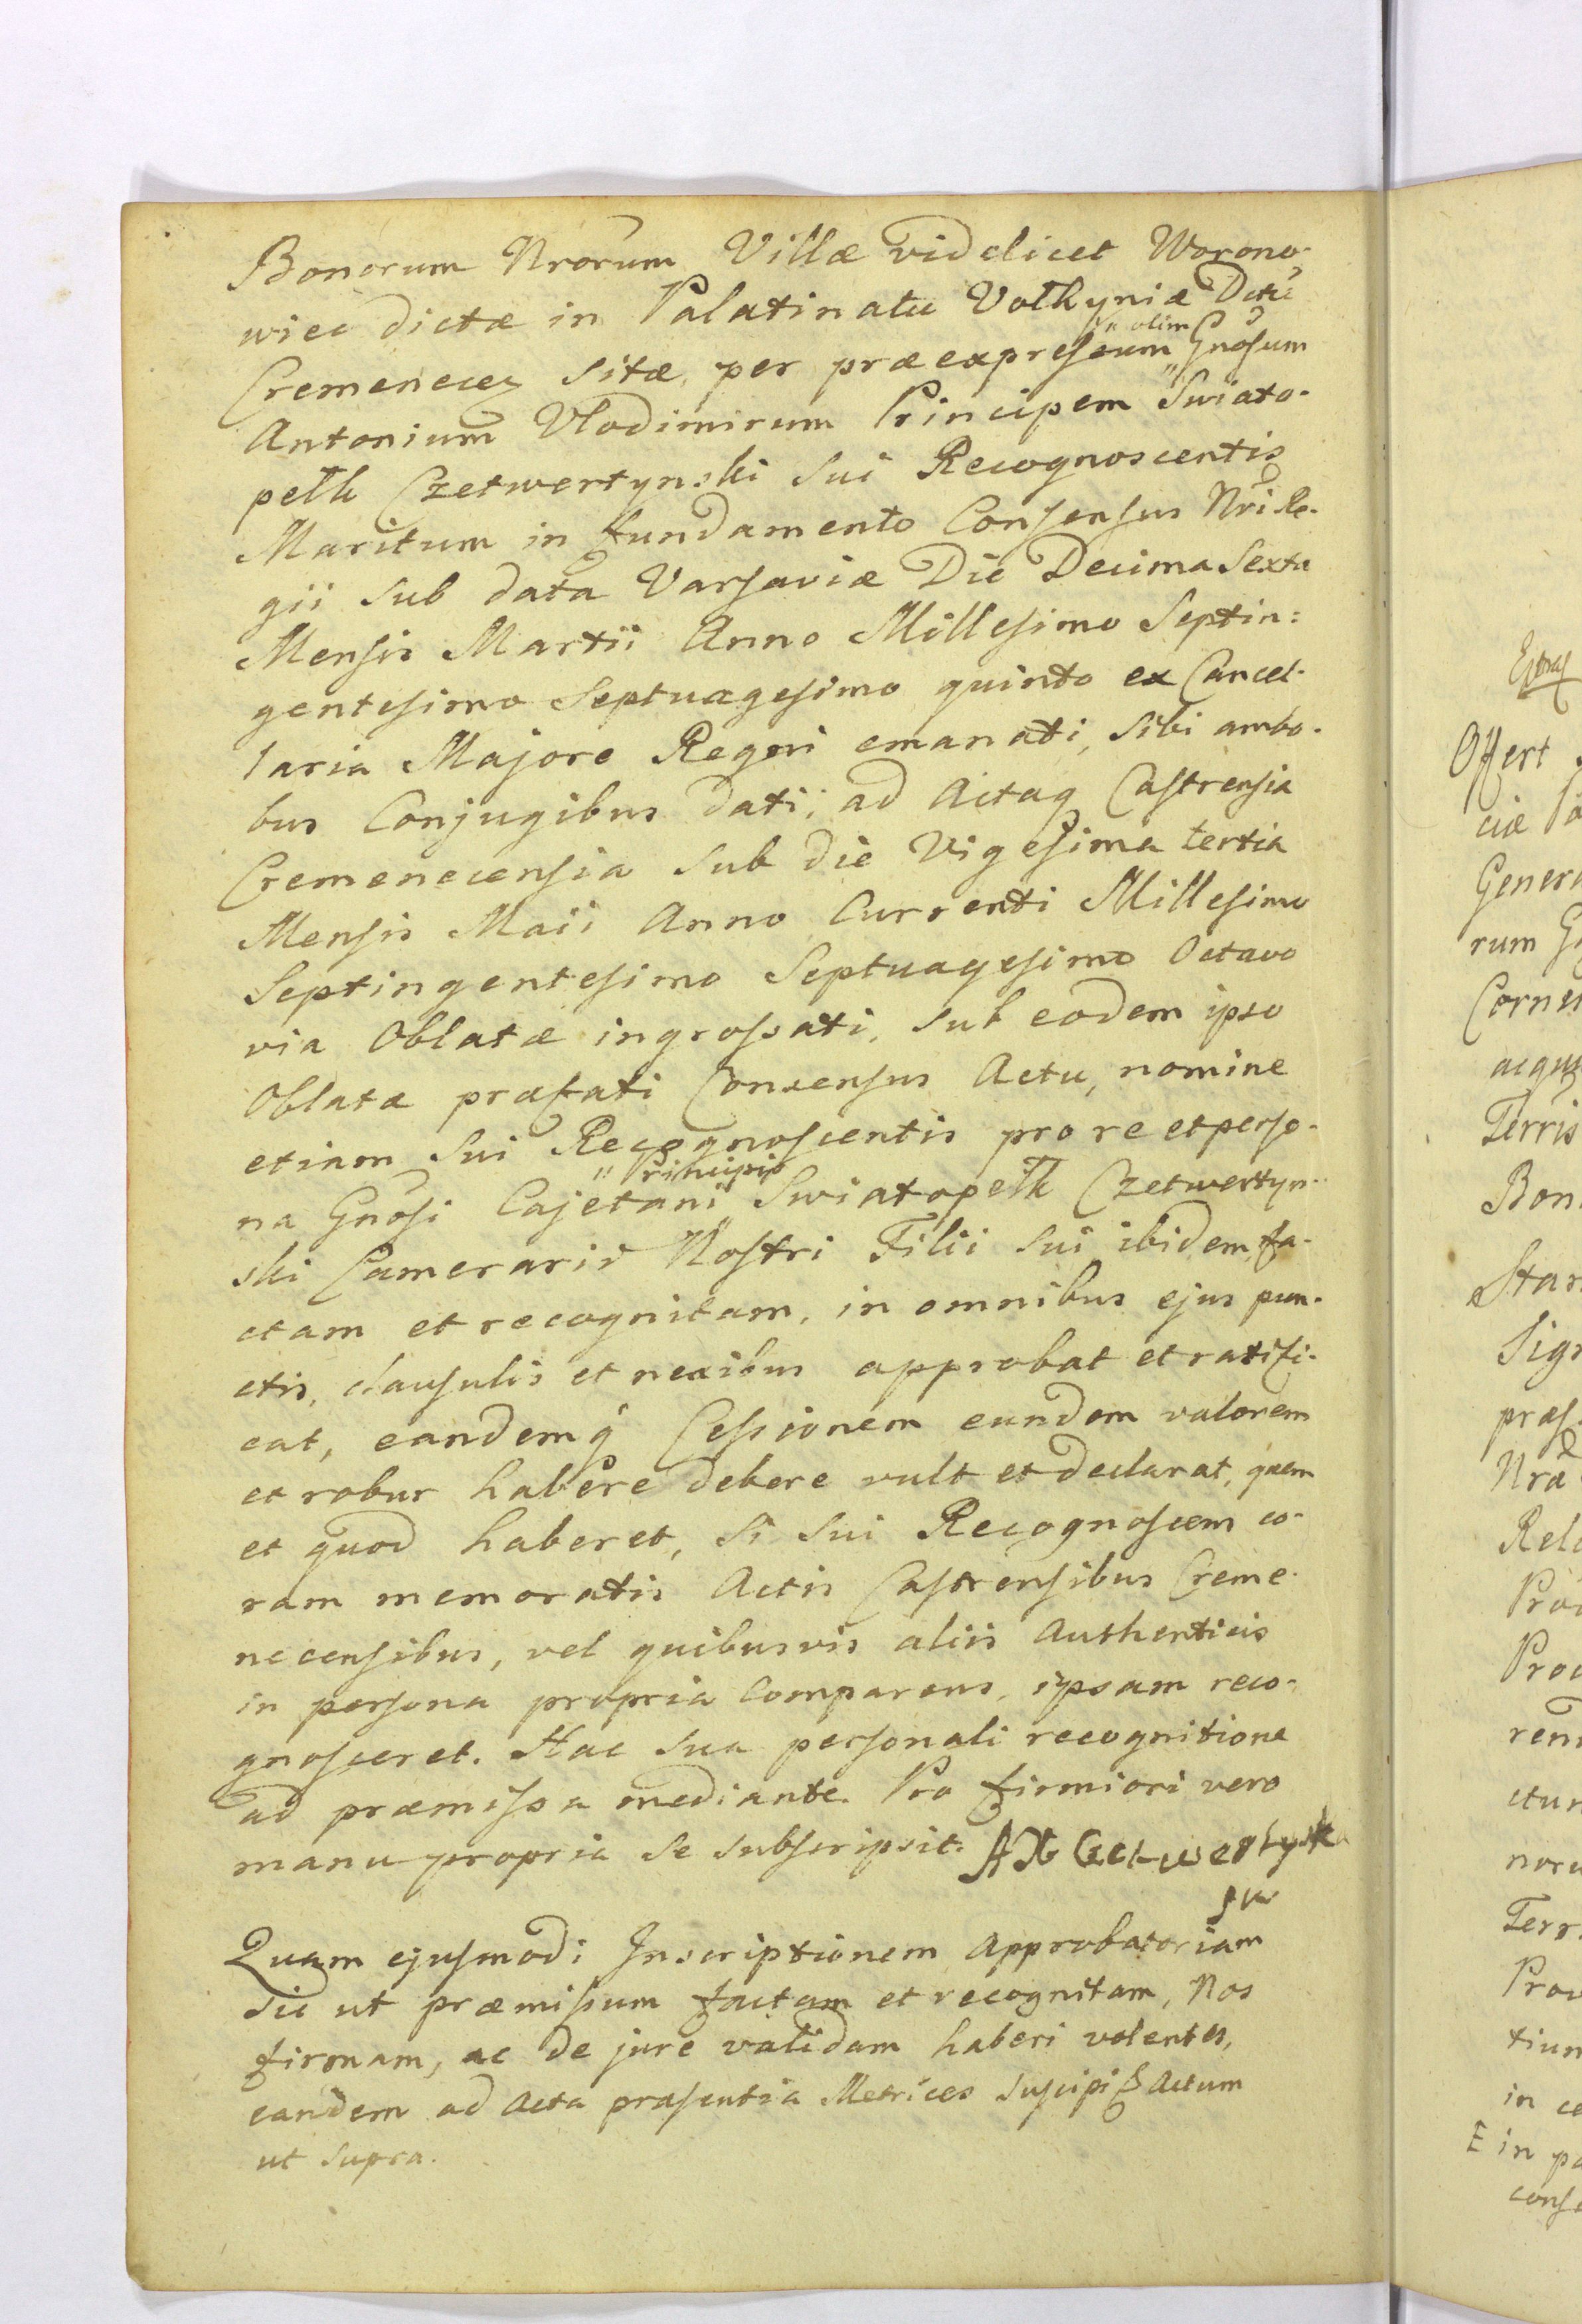 Bonorum Nrorum Villæ videlicet Worono-
wiec dictæ in Palatinatu Volhyniæ Dctu
Cremenecen sitæ, per præexpressum " olim " Gnosum
Antonium Vlodimirum Principem Swiato-
pelk Czetwertynski sui Recognoscentis
Maritum in fundamento Consensus Nri Re-
gii sub data Varsaviæ Die Decima Sexta
Mensis Martii Anno Millesimo Septin:
gentesimo Septuagesimo quinto ex Cancel-
laria Majore Regni emanati, sibi ambo-
bus Conjugibus dati, ad Actaq Castrensia
Cremenecensia sub die Vigesima tertia
Mensis Maii Anno Currenti Millesimo
Septingentesimo Septuagesimo Octavo
via Oblatæ ingrossati, sub eodem ipso
Oblatæ præfati Consensus Actu, nomine
etiam sui Recognoscentis pro re et perso-
na Gnosi Cajetani " Principis " Swiatopelk Czetwertyn-
ski Camerarii Nostri Filii sui ibidem fa-
ctam et recognitam, in omnibus ejus pun-
ctis, clausulis et nexibus approbat et ratifi-
cat, eandemq Cessionem eundem valorem
et robur habere debere vult et declarat, quem
et quod haberet, si sui Recognoscem co-
ram memoratis Actis Castrensibus Creme-
necensibus, vel quibusvis aliis Authenticis
in persona propria Comparens, ipsam reco-
gnosceret. Hac sua personali recognitione
ad præmissa mediante. Pro firmiori vero
manu propria se subscripsit. AX Czetwertyska
Quam ejusmodi Inscriptionem Approbatoriam
sic ut præmissum factam et recognitam, Nos
firmam, ac de jure validam haberi volentes,
eandem ad Acta præsentia Metrices suscipi Actum
ut supra.
Offert
ciæ
Genera
rum
Corne
acque
Terris
Bon
Star
Sig
præs
Nræ
Rela
Pro
Proc
ren
ctur
noru
Terr
Prov
tium
in ce
E in pa
cons